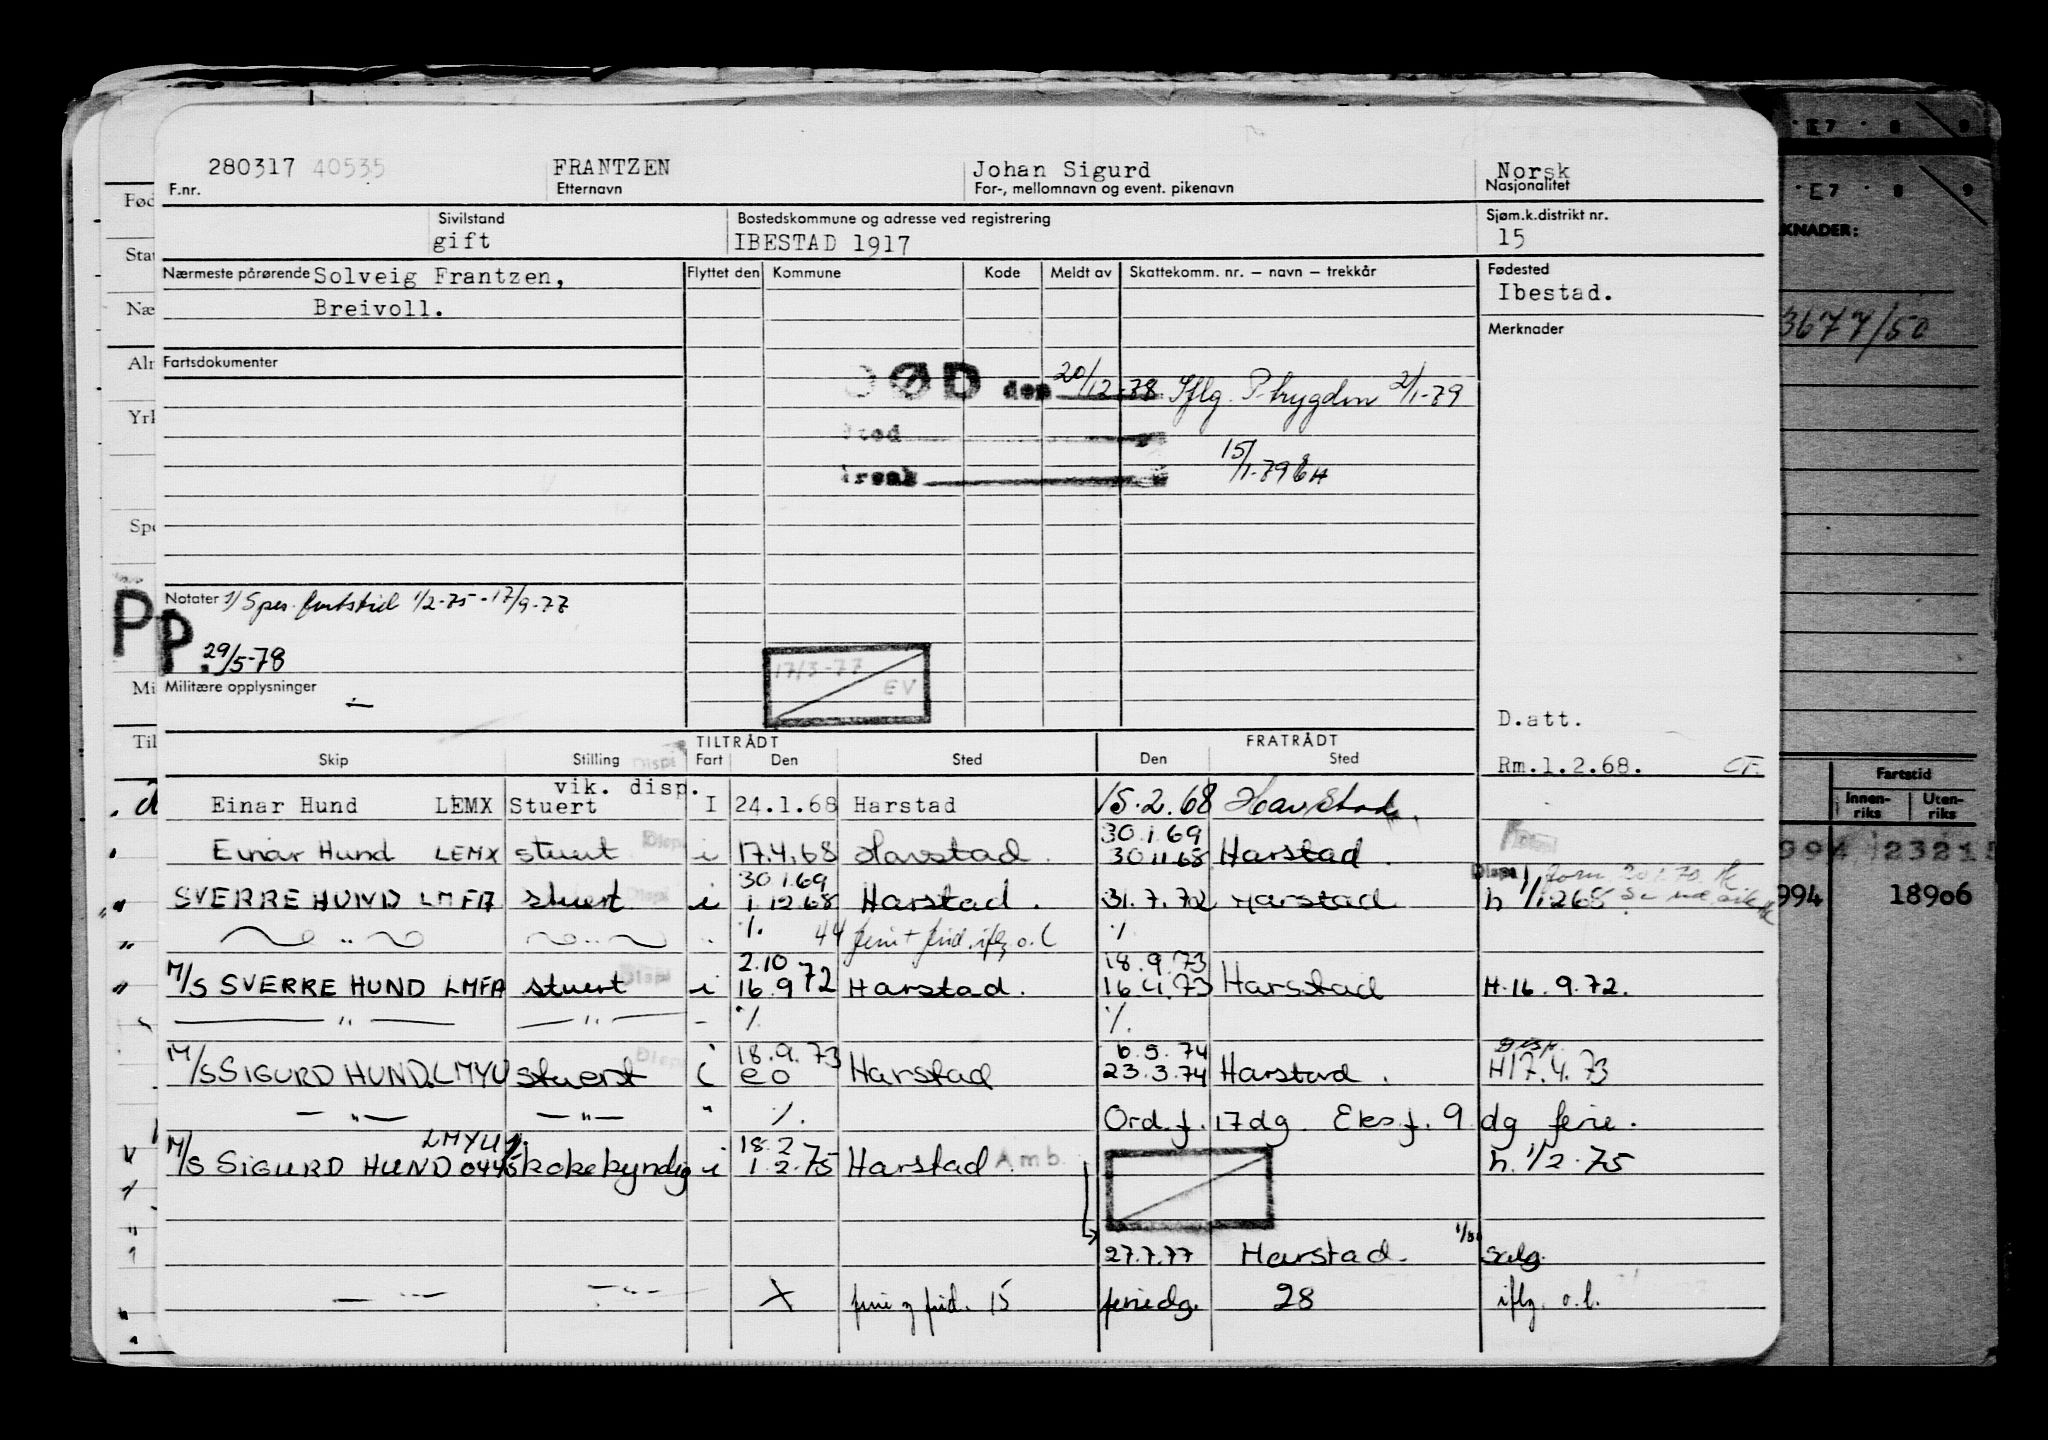 280317 40535 FRANTZEN Johan Sigurd Norsk
F.nr. Etternavn For-, mellomnavn og event. pikenavn Nasjonalitet
Sivilstand Bostedskommune og adresse ved registrering Sjøm.k.distrikt nr.
gift IBESTAD 1917 15
Nærmeste pårørende Solveig Frantzen, Flyttet den Kommune Kode Meldt av Skattekomm. nr. – navn – trekkår Fødested
Breivoll. Ibestad.
Merknader
Fartsdokumenter
ØD den 20/12-78 Iflg. P-trygden 2/1-79
sted
15/1-79
årsak
Notater 1/ Spes. fartstid 1/2-75-17/9-77
PP. 29/5-78
17/3-77
EV
Militære opplysninger
D.att.
Rm.1.2.68. CF.
TILTRÅDT FRATRÅDT
Skip Stilling Fart Den Sted Den Sted
vik. disp.
Einar Hund LEMX Stuert I 24.1.68 Harstad 15.2.68 Harstad
30.1.69
Einar Hund LEMX stuert Disp i 17.4.68 Harstad. 30.11.68 Harstad.
30.1.69
SVERRE HUND LMFA stuert Disp i 1.12.68 Harstad. 31.7.72 Harstad h 1/12 68
" ./. 44 ferie + frid. iflg. o.l ./.
2.10 18.9.73
M/S SVERRE HUND LMFA stuert Disp i 16.9 72 Harstad. 16.4.73 Harstad H.16.9.72.
" " - ./. ./.
18.9.73 6.5.74 Disp.
M/S SIGURD HUND LMYU stuert Disp i eo Harstad 23.3.74 Harstad. H17.4.73
" " " ./. Ord.f. 17 dg. Eks.f. 9 dg ferie.
LMYU 18.2
M/S SIGURD HUND 0445 kokekyndig i 1.2.75 Harstad Amb. h. 1/2.75
27.7.77 Harstad. Salg.
" " X ferie og frid. 15 feriedg. 28 iflg. o.l.
Fød
Stat
Næ
Alm
Yrk
Spe
Mi
Til
E7 8 9
E7 8 9
KNADER:
3677/50
Fartstid
Innen-riks Uten-riks
994 23215
994 18906